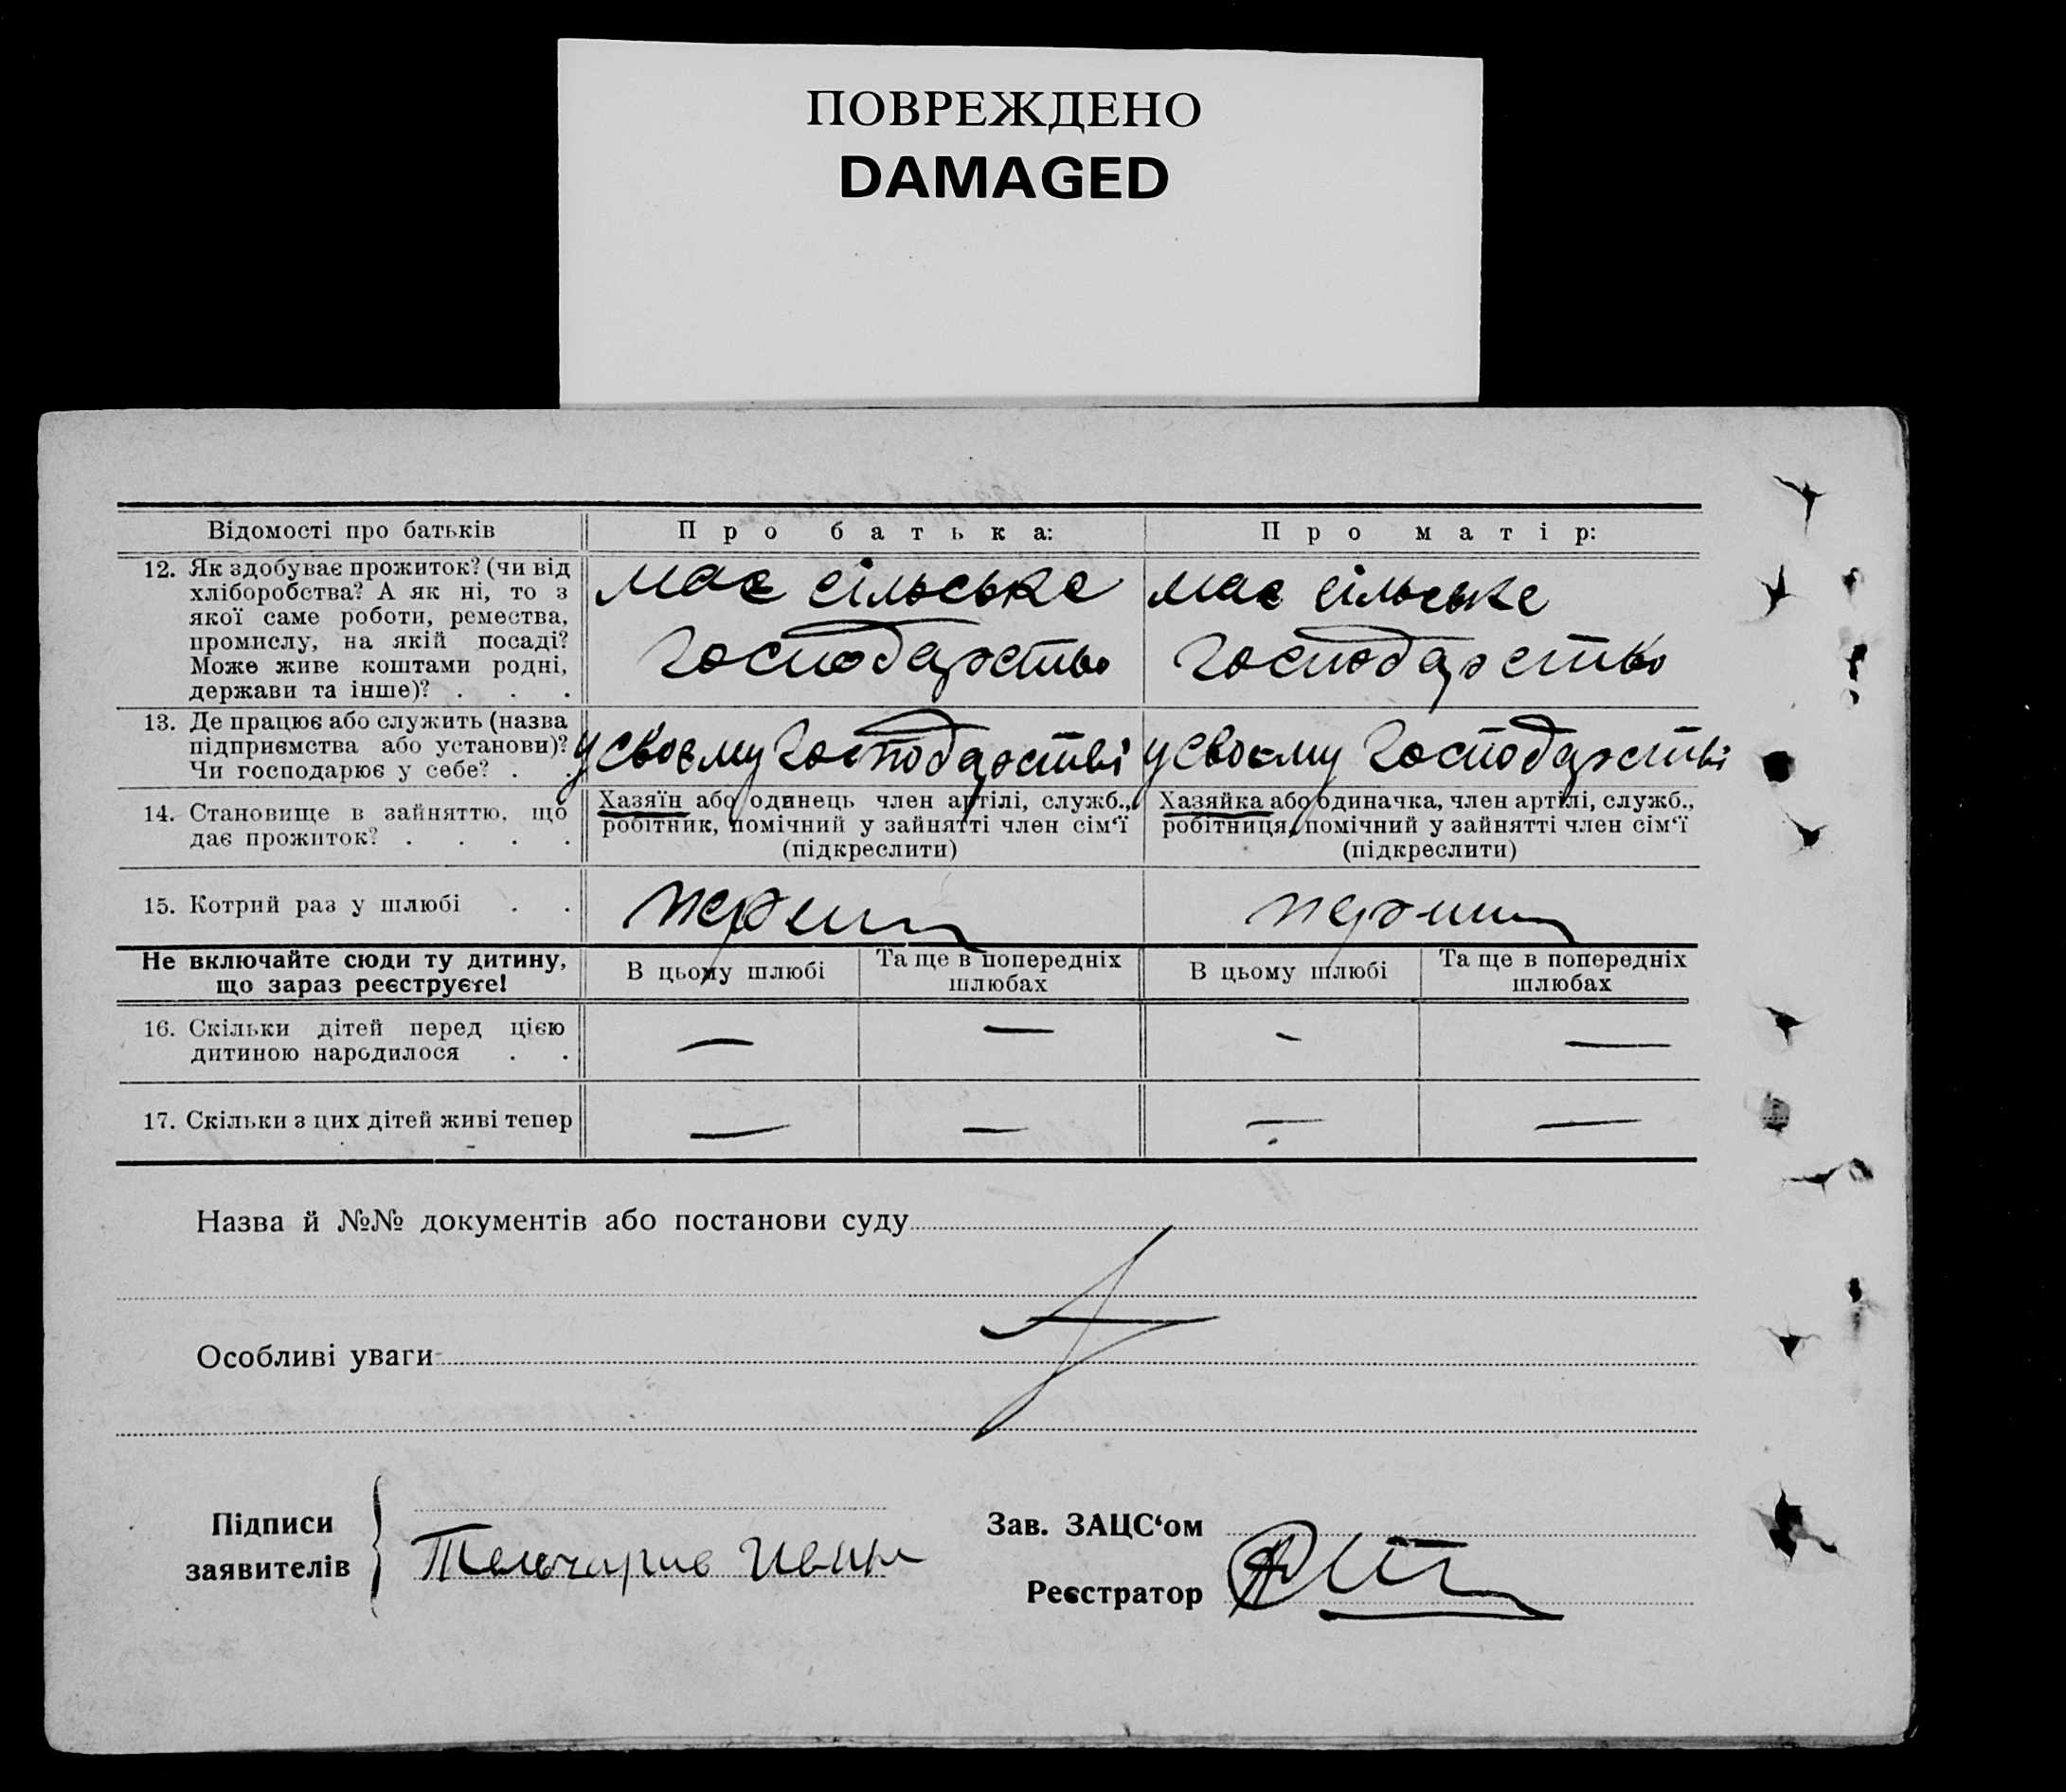 ПОВРЕЖДЕНО
DAMAGED
Відомості про батьків
Про батька:
Про матір:
12. Як здобуває прожиток? (чи від
хліборобства? А як ні, то з
якої саме роботи, ремества,
промислу, на якій посаді?
Може живе коштами родні,
держави та інше)? . . .
має сільське
господарство
має сільське
господарство
13. Де працює або служить (назва
підприємства або установи)?
Чи господарює у себе? . .
у своєму господарстві
у своєму господарстві
14. Становище в зайняттю, що
дає прожиток? . . . .
Хазяїн або одинець член артілі, служб.,
робітник, помічний у зайнятті член сім‘ї
(підкреслити)
Хазяйка або одиначка, член артілі, служб.,
робітниця, помічний у зайнятті член сім‘ї
(підкреслити)
15. Котрий раз у шлюбі . .
перший
перший
Не включайте сюди ту дитину,
що зараз реєструєте!
В цьому шлюбі
Та ще в попередніх
шлюбах
В цьому шлюбі
Та ще в попередніх
шлюбах
16. Скільки дітей перед цією
дитиною народилося . .
— — - —
17. Скільки з цих дітей живі тепер
— — — —
Назва й №№ документів або постанови суду
Особливі уваги
Підписи
заявителів
Зав. ЗАЦС‘ом
Реєстратор